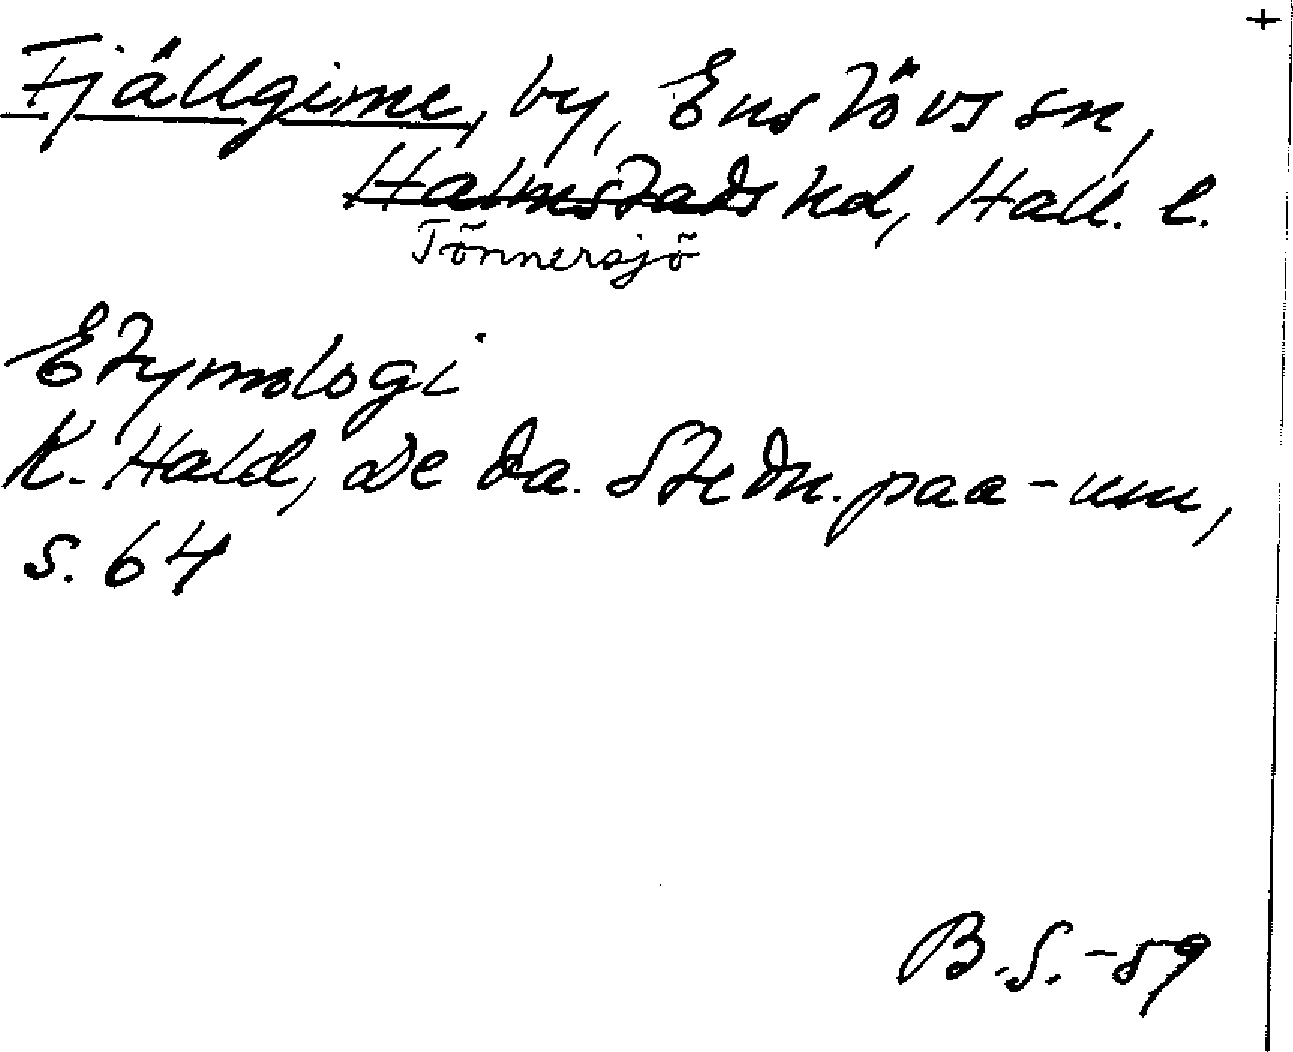 +
Fjällgime, by, Enslövs sn,
Halmstads hd, Hall. l.
Tönnersjö
Etymologi
K. Hald, De da. Stedn. paa -um,
s. 64
B.S. -59